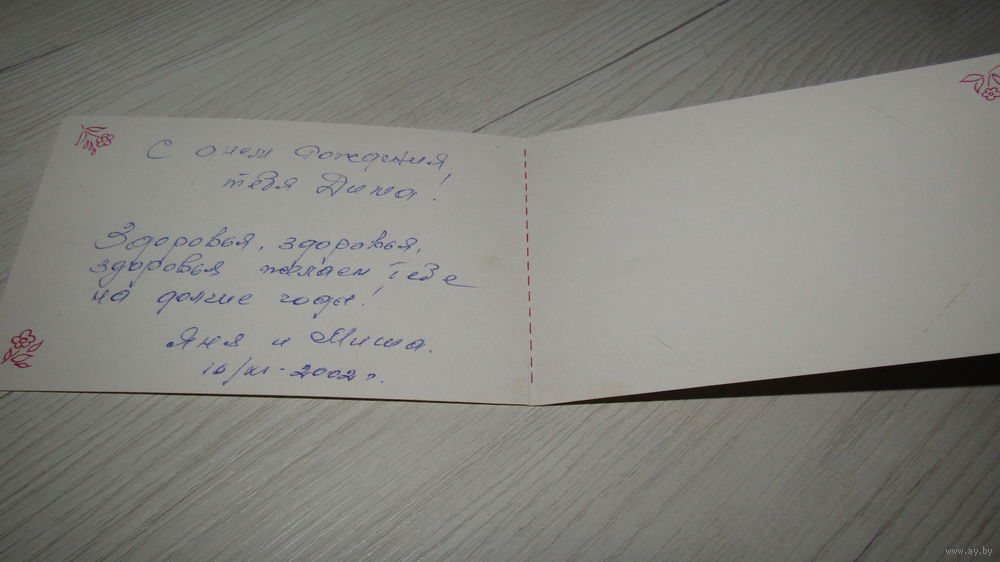 С днем рождения
тебя Дима!
Здоровья, здоровья,
здоровья желаем тебе
на долгие годы!
Яня и Миша.
16/XI-2002г.
www.ay.by